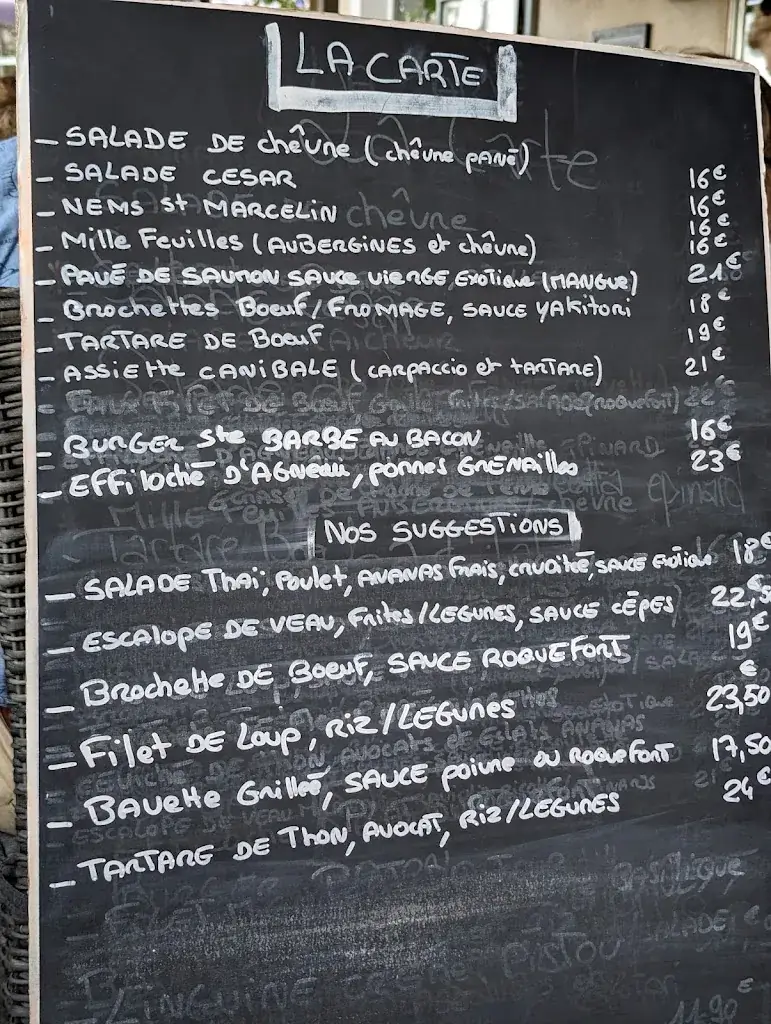 LA CARTE
- SALADE DE chêvre (chêvre pané) 16€
- SALADE CESAR 16€
- NEMS St MARCELIN 16€
- Mille Feuilles (AUBERGINES et chêvre) 16€
- PAVÉ DE SAUMON SAUCE VIERGE EXOTIQUE (MANGUE) 21€
- Brochettes Boeuf/FROMAGE, SAUCE YAKITORI 18€
- TARTARE DE Boeuf 19€
- ASSIETTE CANIBALE (CARPACCIO et TARTARE) 21€
- BURGER Ste BARBE AU BACON 16€
- EFFILOCHÉ D'AGNEAU, POMMES GRENAILLES 23€
NOS SUGGESTIONS
- SALADE Thaï, Poulet, ANANAS FRAIS, CRUDITÉ, SAUCE EXOTIQUE 18€
- ESCALOPE DE VEAU, Frites/LEGUMES, SAUCE CÊPES 22,5
- Brochette DE Boeuf, SAUCE ROQUEFORT 19€
- Filet DE Loup, RIZ/LEGUMES 23,50€
- BAVETTE GRILLÉE, SAUCE POIVRE OU ROQUEFORT 17,50
- TARTARE DE THON, AVOCAT, RIZ/LEGUMES 24€